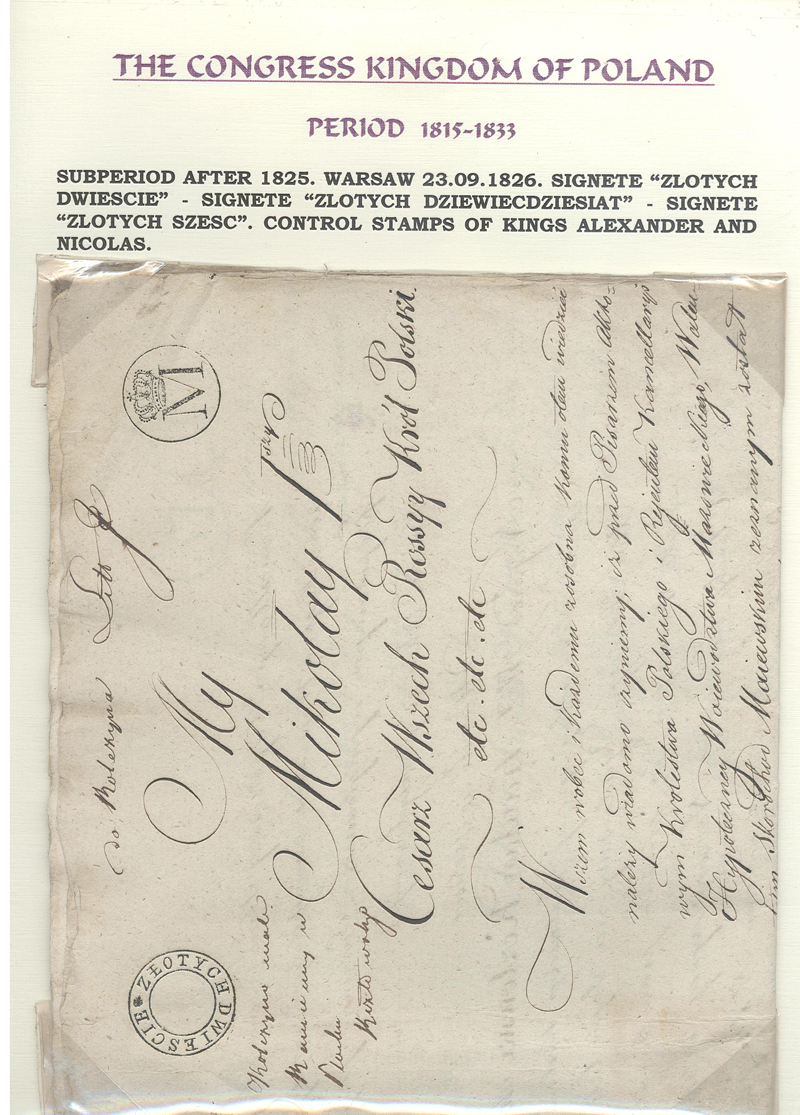 THE CONGRESS KINGDOM OF POLAND
PERIOD 1815-1833
SUBPERIOD AFTER 1825. WARSAW 23.09.1826. SIGNETE “ZLOTYCH
DWIESCIE” - SIGNETE “ZLOTYCH DZIEWIECDZIESIAT” - SIGNETE
“ZLOTYCH SZESC”. CONTROL STAMPS OF KINGS ALEXANDER AND
NICOLAS.
M
ZŁOTYCH DWIESCIE
do Litt
My
Mikołay 1szy
Cesarz Wszech Rossyy Król Polski.
etc. etc. etc
Wszem wobec i każdemu zosobna komu otem wiedzieć
należy wiadomo czyniemy, iż przed Pisarzem Akto=
wym Krolestwa Polskiego i Rejentem Kancellaryi
Hypoteczney Woiewodztwa Mazowieckiego, Walen-
tim Skorochod Maiewskim zeznanym został